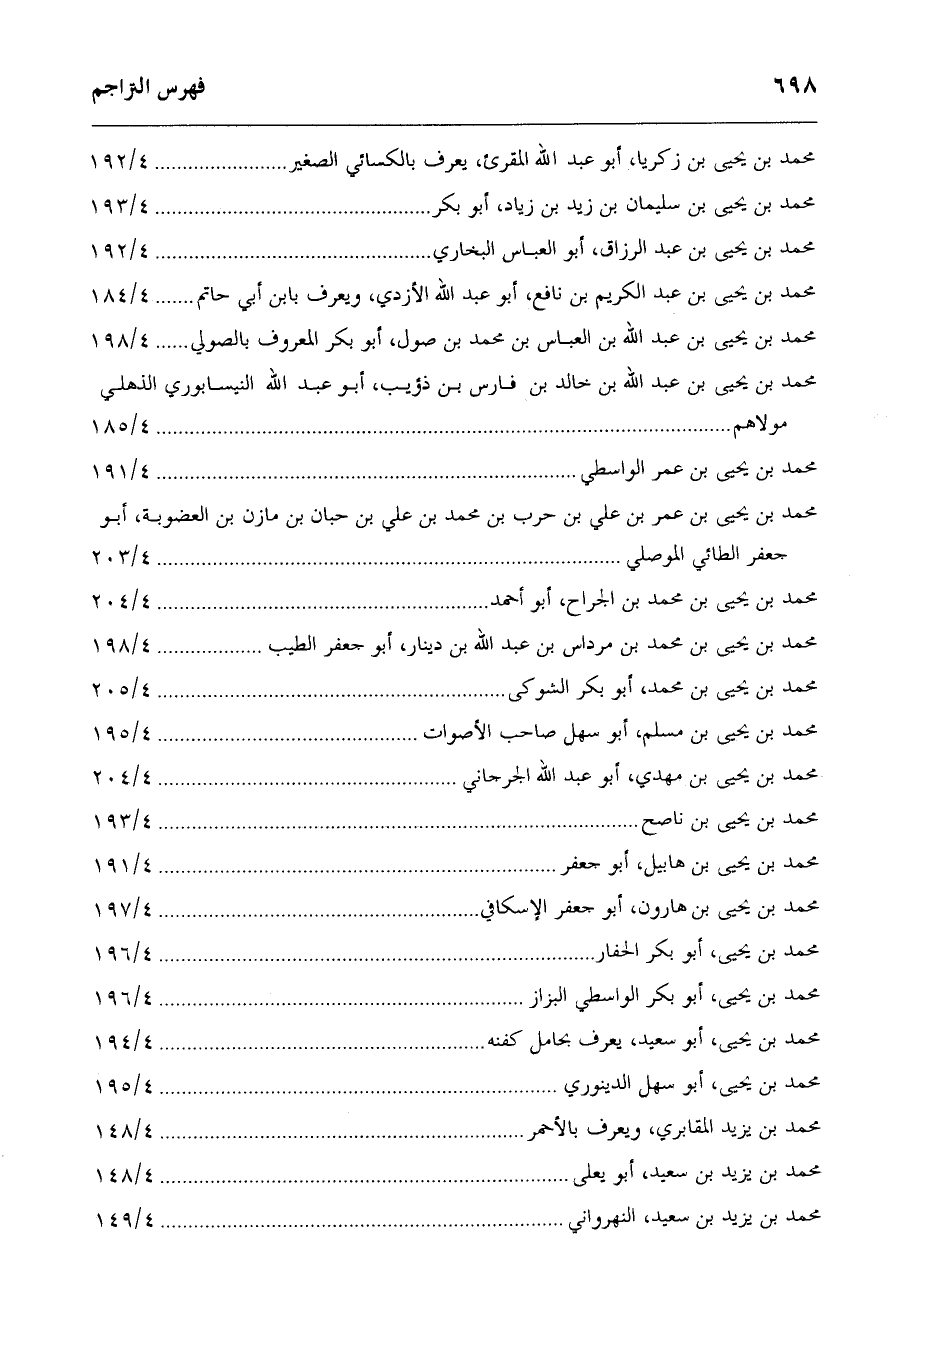 ٦٩٨ فهرس التراجم
محمد بن يحيى بن زكريا، أبو عبد الله المقرئ، يعرف بالكسائي الصغير ....................... ١٩٢/٤
محمد بن يحيى بن سليمان بن زيد بن زياد، أبو بكر ....................... ١٩٣/٤
محمد بن يحيى بن عبد الرزاق، أبو العباس البخاري ....................... ١٩٢/٤
محمد بن يحيى بن عبد الكريم بن نافع، أبو عبد الله الأزدي، ويعرف بابن أبي حاتم ....... ١٨٤/٤
محمد بن يحيى بن عبد الله بن العباس بن محمد بن صول، أبو بكر المعروف بالصولي ...... ١٩٨/٤
محمد بن يحيى بن عبد الله بن خالد بن فارس بن ذؤيب، أبو عبد الله النيسابوري الذهلي
مولاهم ....................... ١٨٥/٤
محمد بن يحيى بن عمر الواسطي ....................... ١٩١/٤
محمد بن يحيى بن عمر بن علي بن حرب بن محمد بن علي بن حبان بن مازن بن العضوبة، أبو
جعفر الطائي الموصلي ....................... ٢٠٣/٤
محمد بن يحيى بن محمد بن الجراح، أبو أحمد ....................... ٢٠٤/٤
محمد بن يحيى بن محمد بن مرداس بن عبد الله بن دينار، أبو جعفر الطيب ................... ١٩٨/٤
محمد بن يحيى بن محمد، أبو بكر الشوكى ....................... ٢٠٥/٤
محمد بن يحيى بن مسلم، أبو سهل صاحب الأصوات ....................... ١٩٥/٤
محمد بن يحيى بن مهدي، أبو عبد الله الجرحاني ....................... ٢٠٤/٤
محمد بن يحيى بن ناصح ....................... ١٩٣/٤
محمد بن يحيى بن هابيل، أبو جعفر ....................... ١٩١/٤
محمد بن يحيى بن هارون، أبو جعفر الإسكافي ....................... ١٩٧/٤
محمد بن يحيى، أبو بكر الحفار ....................... ١٩٦/٤
محمد بن يحيى، أبو بكر الواسطي البزاز ....................... ١٩٦/٤
محمد بن يحيى، أبو سعيد، يعرف بحامل كفنه ....................... ١٩٤/٤
محمد بن يحيى، أبو سهل الدينوري ....................... ١٩٥/٤
محمد بن يزيد المقابري، ويعرف بالأحمر ....................... ١٤٨/٤
محمد بن يزيد بن سعيد، أبو يعلى ....................... ١٤٨/٤
محمد بن يزيد بن سعيد، النهرواني ....................... ١٤٩/٤